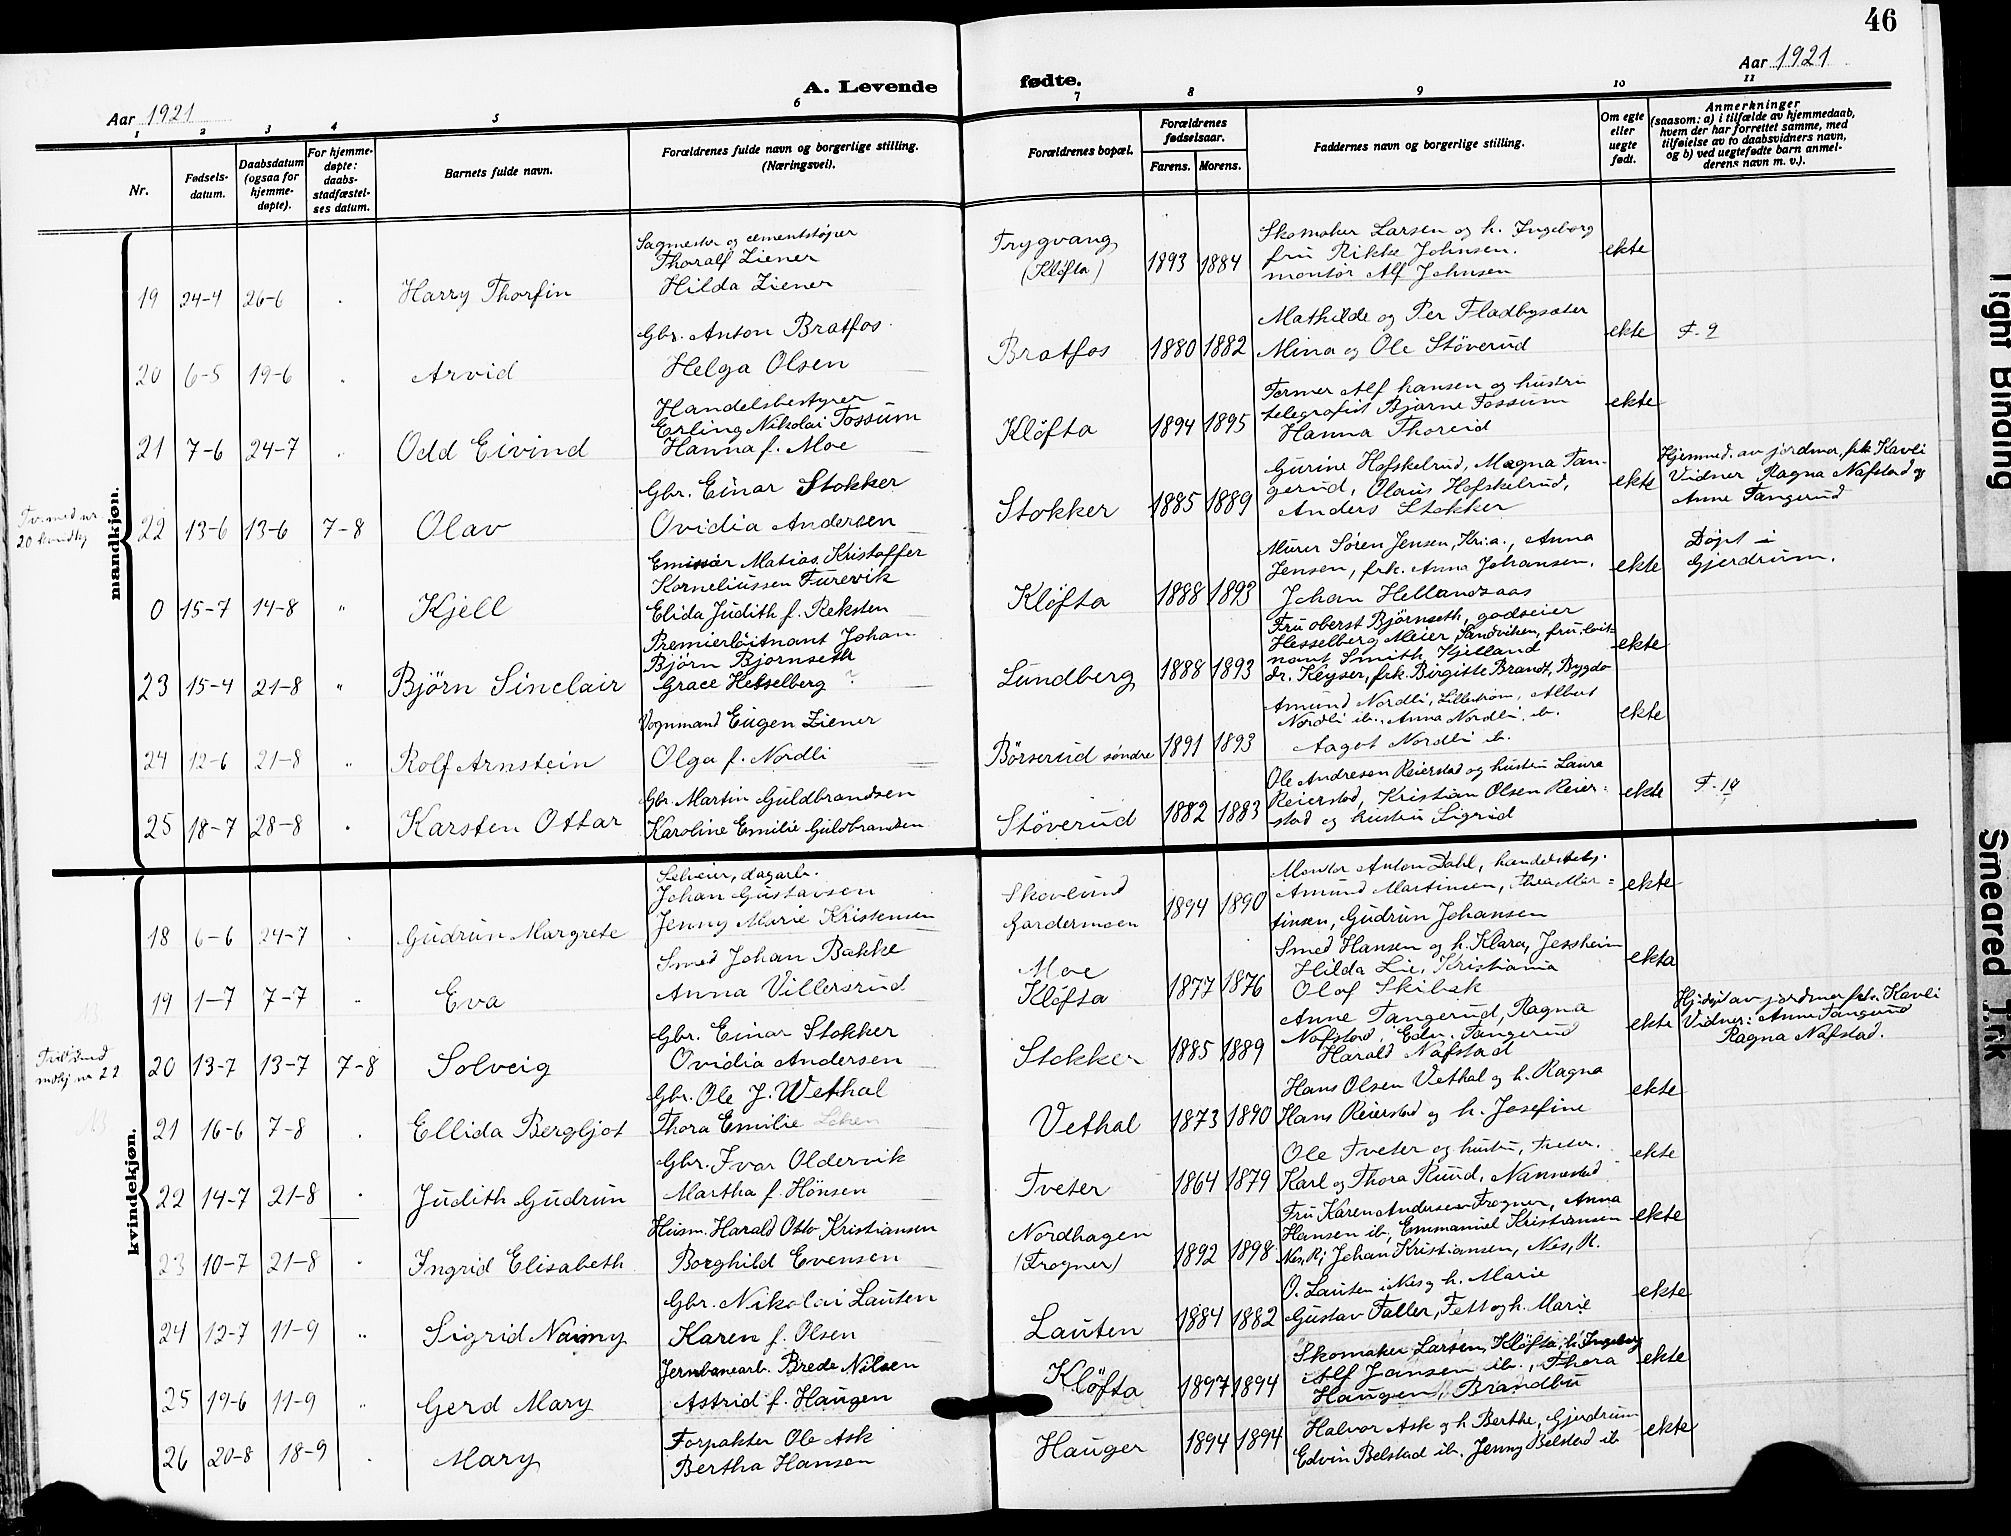 46
Aar 1921
A. Levende
fødte.
Aar 1921
1 2 3 4 5 6 7 8 9 10 11
Nr.
Fødsels-datum.
Daabsdatum (ogsaa for hjemme-døpte).
For hjemme-døpte: daabs-stadfæstel-ses datum.
Barnets fulde navn.
Forældrenes fulde navn og borgerlige stilling. (Næringsvei).
Forældrenes bopæl.
Forældrenes fødselsaar.
Farens. Morens.
Faddernes navn og borgerlige stilling.
Om egte eller uegte født.
Anmerkninger
(saasom: a) i tilfælde av hjemmedaab,
hvem der har forrettet samme, med
tilføielse av to daabsvidners navn,
og b) ved uegtefødte barn anmel-
derens navn m. v.).
mandkjøn.
Sagmester og cementstøper
Thoralf Ziener
19 24-4 26-6 Harry Thorfin Hilda Ziener
Trygvang (Kløfta) 1893 1884
Skomaker Larsen og h. Ingeborg
fru Rikke Johnsen.
montør Alf Johnsen
ekte
Gbr. Anton Bratfos
20 6-5 19-6 Arvid Helga Olsen
Bratfos 1880 1882
Mathilde og Per Fladbysæter
Mina og Ole Støverud
ekte F. 9
Handelsbestyrer
Erling Nikolai Fossum
21 7-6 24-7 Odd Eivind Hanna f. Moe
Kløfta 1894 1895
Former Alf hansen og hustru
telegrafist Bjarne Fossum
Hanna Thoreid
ekte
Gbr. Einar Stokker
22 13-6 13-6 7-8 Olav Ovidia Andersen
Stokker 1885 1889
Gurine Hofskelrud, Magna Tan-
gerud, Olaus Hofskelrud,
Anders Stokker
ekte
Hjemmed. av jordmor frk Kavli
Vidner Ragna Nafstad og
Anne Tangerud
Emissær Matias Kristoffer
Korneliussen Furevik
0 15-7 14-8 " Kjell Elida Judith f. Reksten
Kløfta 1888 1893
Murer Søren Jensen, Kr.a., Anna
Jensen, frk. Anna Johansen.
Johan Hellandsaas
ekte
Døpt i
Gjerdrum.
Premierløitnant Johan
Bjørn Bjørnseth
23 15-4 21-8 " Björn Sinclair Grace Hesselberg ?
Lundberg 1888 1893
Fru oberst Bjørnseth, godseier
Hesselberg Meier, Sandviken, fru løit-
nant Smith Kjelland
dr. Keyser, frk. Birgitte Brandt, Bygdø
ekte
Vognmand Eugen Ziener
24 12-6 21-8 " Rolf Arnstein Olga f. Nordli
Börserud søndre 1891 1893
Amund Nordli, Lillestrøm, Albert
Nordli ib., Anna Nordli, ib.
Aagot Nordli ib.
ekte
Gbr. Martin Guldbrandsen
25 18-7 28-8 Karsten Ottar Karoline Emilie Guldbrandsen
Støverud 1882 1883
Ole Andresen Reierstad og hustru Laura
Reierstad, Kristian Olsen Reier-
stad og hustru Sigrid
ekte F. 10
kvindekjøn.
Selveier, dagarb.
Johan Gustavsen
18 6-6 24-7 Gudrun Margrete Jenny Marie Kristensen
Skovlund Gardermoen 1894 1890
Montør Anton Dahl, handelsbety.
Amund Martinsen, Thea Mar-
tinsen, Gudrun Johansen
ekte
Smed Johan Bakke
19 1-7 7-7 Eva Anna Villersrud
Moe Kløfta 1877 1876
Smed Hansen og h. Klara, Jessheim
Hilda Lie, Kristiania
Olaf Skibek
ekta
Gbr. Einar Stokker
20 13-7 13-7 7-8 Solveig Ovidia Andersen
Stokker 1885 1889
Anne Tangerud, Ragna
Nafstad, Edv. Tangerud
Harald Nafstad
ekte
av jordmor frk. Kavli
Vidner: Anne Tangerud
Ragna Nafstad.
Gbr. Ole J. Wethal
21 16-6 7-8 Ellida Bergljot Thora Emilie
Vethal 1873 1890
Hans Olsen Vethal og h. Ragna
Hans Reierstad og h. Josefine
ekte
Gbr. Ivar Oldervik
22 14-7 21-8 Judith Gudrun Martha f. Hönsen
Tveter 1864 1879
Ole Tveter og hustru, Tveter.
Karl og Thora Ruud, Nannestad
ekte
Husm. Harald Otto Kristiansen
23 10-7 21-8 Ingrid Elisabeth Borghild Evensen
Nordhagen (Frogner) 1892 1898
Fru Karen Andersen Frogner, Anna
Hansen ib, Emmanuel Kristiansen
Nes, R; Johan Kristiansen, Nes, R.
ekte
Gbr. Nikolai Lauten
24 12-7 11-9 " Sigrid Naimy Karen f. Olsen
Lauten 1884 1882
O. Lauten i Nes og h. Marie
Gustav Faller, Fett og h. Marie
ekte
Jernbanearb. Brede Nilsen
25 19-6 11-9 " Gerd Mary Astrid f. Haugen
Kløfta 1897 1894
Skomaker Larsen, Kløfta, h. Ingeborg
Alf Jansen ib., Thora
Haugen, Brandbu
ekte
Forpakter Ole Ask
26 20-8 18-9 Mary Bertha Hansen
Hauger 1894 1894
Halvor Ask og h Berthe, Gjerdrum
Edvin Belstad ib. Jenny Belstad ib
ekte
Tight Binding
Smeared Ink